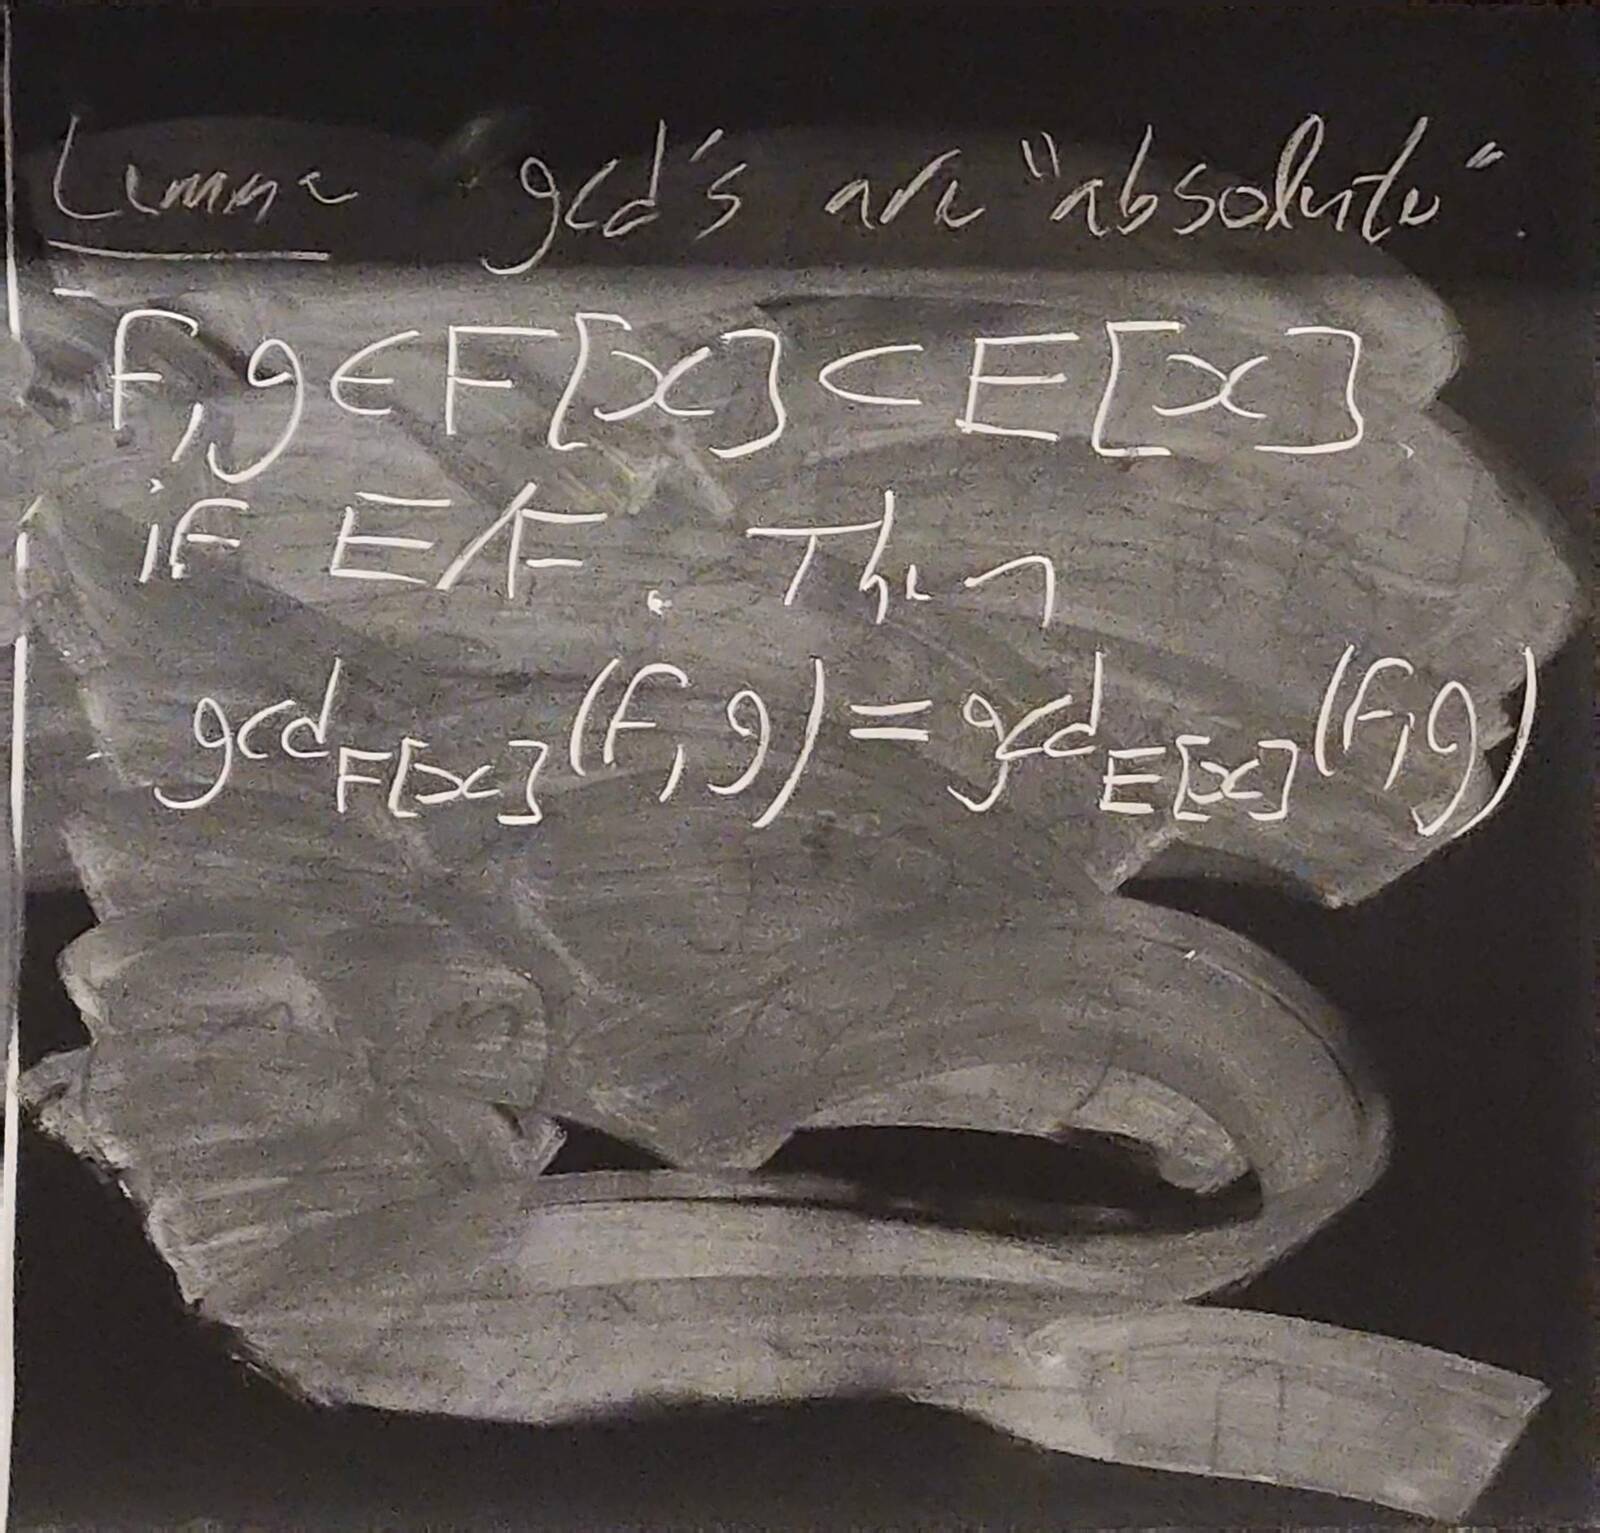 Lemma gcd's are "absolute".
f,g ∈ F[x] ⊂ E[x].
if E/F. Then
gcd_{F[x]}(f,g) = gcd_{E[x]}(f,g)